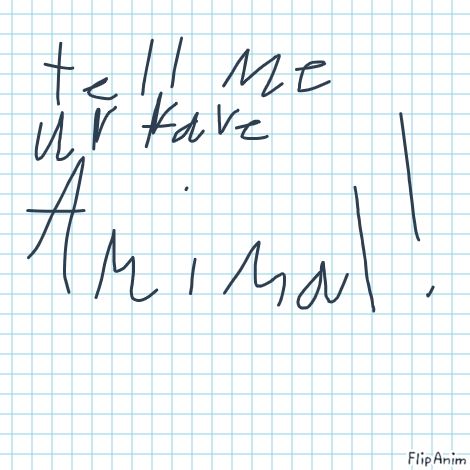 tell me
ur fave
Animal!
FlipAnim